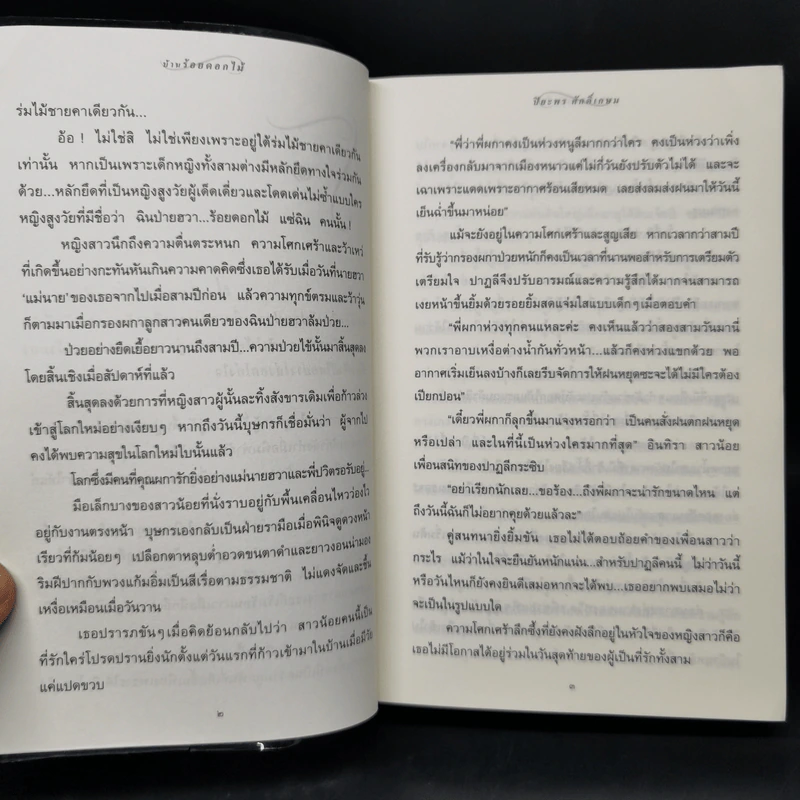 บ้านร้อยดอกไม้
ร่มไม้ชายคาเดียวกัน...
อ้อ ! ไม่ใช่สิ ไม่ใช่เพียงเพราะอยู่ใต้ร่มไม้ชายคาเดียวกัน
เท่านั้น หากเป็นเพราะเด็กหญิงทั้งสามต่างมีหลักยึดทางใจร่วมกัน
ด้วย...หลักยึดที่เป็นหญิงสูงวัยผู้เด็ดเดี่ยวและโดดเด่นไม่ซ้ำแบบใคร
หญิงสูงวัยที่มีชื่อว่า ฉินป่ายฮวา...ร้อยดอกไม้ แซ่ฉิน คนนั้น !
หญิงสาวนึกถึงความตื่นตระหนก ความโศกเศร้าและว้าเหว่
ที่เกิดขึ้นอย่างกะทันหันเกินความคาดคิดซึ่งเธอได้รับเมื่อวันที่นายฮวา
'แม่นาย' ของเธอจากไปเมื่อสามปีก่อน แล้วความทุกข์ตรมและว้าวุ่น
ก็ตามมาเมื่อกรองผกาลูกสาวคนเดียวของฉินป่ายฮวาล้มป่วย...
ป่วยอย่างยืดเยื้อยาวนานถึงสามปี...ความป่วยไข้นั้นมาสิ้นสุดลง
โดยสิ้นเชิงเมื่อสัปดาห์ที่แล้ว
สิ้นสุดลงด้วยการที่หญิงสาวผู้นั้นละทิ้งสังขารเดิมเพื่อก้าวล่วง
เข้าสู่โลกใหม่อย่างเงียบๆ หากถึงวันนี้บุษกรก็เชื่อมั่นว่า ผู้จากไป
คงได้พบความสุขในโลกใหม่ใบนั้นแล้ว
โลกซึ่งมีคนที่คุณผการักยิ่งอย่างแม่นายฮวาและพี่ปวิตรอรับอยู่...
มือเล็กบางของสาวน้อยที่นั่งราบอยู่กับพื้นเคลื่อนไหวว่องไว
อยู่กับงานตรงหน้า บุษกรเองกลับเป็นฝ่ายรามือเมื่อพินิจดูดวงหน้า
เรียวที่ก้มน้อยๆ เปลือกตาหลุบต่ำอวดขนตาดำและยาวงอนน่ามอง
ริมฝีปากกับพวงแก้มอิ่มเป็นสีเรื่อตามธรรมชาติ ไม่แดงจัดและชื้น
เหงื่อเหมือนเมื่อวันวาน
เธอปรารภขันๆ เมื่อคิดย้อนกลับไปว่า สาวน้อยคนนี้เป็น
ที่รักใคร่โปรดปรานยิ่งนักตั้งแต่วันแรกที่ก้าวเข้ามาในบ้านเมื่อมีวัย
แค่แปดขวบ
๒
ปิยะพร ศักดิ์เกษม
"พี่ว่าพี่ผกาคงเป็นห่วงหนูลีมากกว่าใคร คงเป็นห่วงว่าเพิ่ง
ลงเครื่องกลับมาจากเมืองหนาวแค่ไม่กี่วันยังปรับตัวไม่ได้ และจะ
เฉาเพราะแดดเพราะอากาศร้อนเสียหมด เลยส่งลมส่งฝนมาให้วันนี้
เย็นฉ่ำขึ้นมาหน่อย"
แม้จะยังอยู่ในความโศกเศร้าและสูญเสีย หากเวลากว่าสามปี
ที่รับรู้ว่ากรองผกาป่วยหนักก็คงเป็นเวลาที่นานพอสำหรับการเตรียมตัว
เตรียมใจ ปาฏลีจึงปรับอารมณ์และความรู้สึกได้มากจนสามารถ
เงยหน้าขึ้นยิ้มด้วยรอยยิ้มสดแจ่มใสแบบเด็กๆ เมื่อตอบคำ
"พี่ผกาห่วงทุกคนแหละค่ะ คงเห็นแล้วว่าสองสามวันมานี่
พวกเราอาบเหงื่อต่างน้ำกันทั่วหน้า...แล้วก็คงห่วงแขกด้วย พอ
อากาศเริ่มเย็นลงบ้างก็เลยรีบจัดการให้ฝนหยุดซะจะได้ไม่มีใครต้อง
เปียกปอน"
"เดี๋ยวพี่ผกาก็ลุกขึ้นมาแจงหรอกว่า เป็นคนสั่งฝนตกฝนหยุด
หรือเปล่า และในที่นี้เป็นห่วงใครมากที่สุด" อินทิรา สาวน้อย
เพื่อนสนิทของปาฏลีกระซิบ
"อย่าเรียกนักเลย...ขอร้อง...ถึงพี่ผกาจะน่ารักขนาดไหน แต่
ถึงวันนี้ฉันก็ไม่อยากคุยด้วยแล้วละ"
คู่สนทนายิ่งยิ้มขัน เธอไม่ได้ตอบถ้อยคำของเพื่อนสาวว่า
กระไร แม้ว่าในใจจะยืนยันหนักแน่น...สำหรับปาฏลีคนนี้ ไม่ว่าวันนี้
หรือวันไหนก็ยังคงยินดีเสมอหากจะได้พบ...เธออยากพบเสมอไม่ว่า
จะเป็นในรูปแบบใด
ความโศกเศร้าลึกซึ้งที่ยังคงฝังลึกอยู่ในหัวใจของหญิงสาวก็คือ
เธอไม่มีโอกาสได้อยู่ร่วมในวันสุดท้ายของผู้เป็นที่รักทั้งสาม
๓